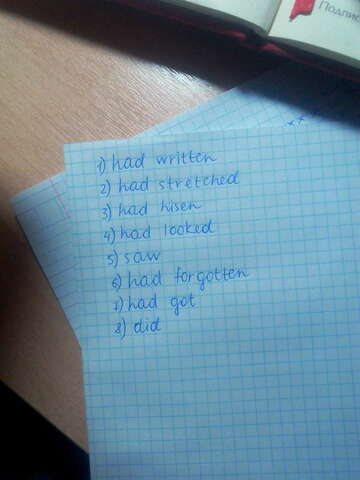 Подпис
1) had written
2) had stretched
3) had hisen
4) had looked
5) saw
6) had forgotten
7) had got
8) did